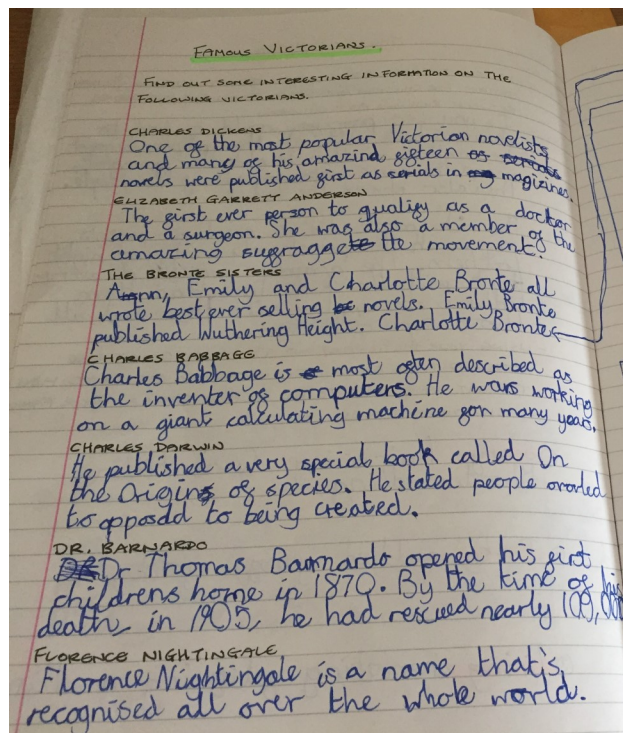 FAMOUS VICTORIANS.
FIND OUT SOME INTERESTING INFORMATION ON THE
FOLLOWING VICTORIANS.
CHARLES DICKENS
One of the most popular Victorian novelists
and many of his amazind fifteen
novels were published first as serials in magizines.
ELIZABETH GARRETT ANDERSON
The first ever person to qualify as a docter
and a surgeon. She was also a member of the
amazing suffragette movement.
THE BRONTE SISTERS
Ann, Emily and Charlotte Bronte all
wrote best ever selling novels. Emily Bronte
published Wuthering Height. Charlotte Bronte
CHARLES BABBAGE
Charles Babbage is most often described as
the inventer of computers. He was working
on a giant calculating machine for many years.
CHARLES DARWIN
He published a very special book called On
the Origin of species. He stated people
to opposdd to being created.
DR. BARNARDO
Dr Thomas Barnardo opened his first
childrens home in 1870. By the time of his
death, in 1905, he had rescued nearly 100,000
FLORENCE NIGHTINGALE
Florence Nightingale is a name that's
recognised all over the whole world.